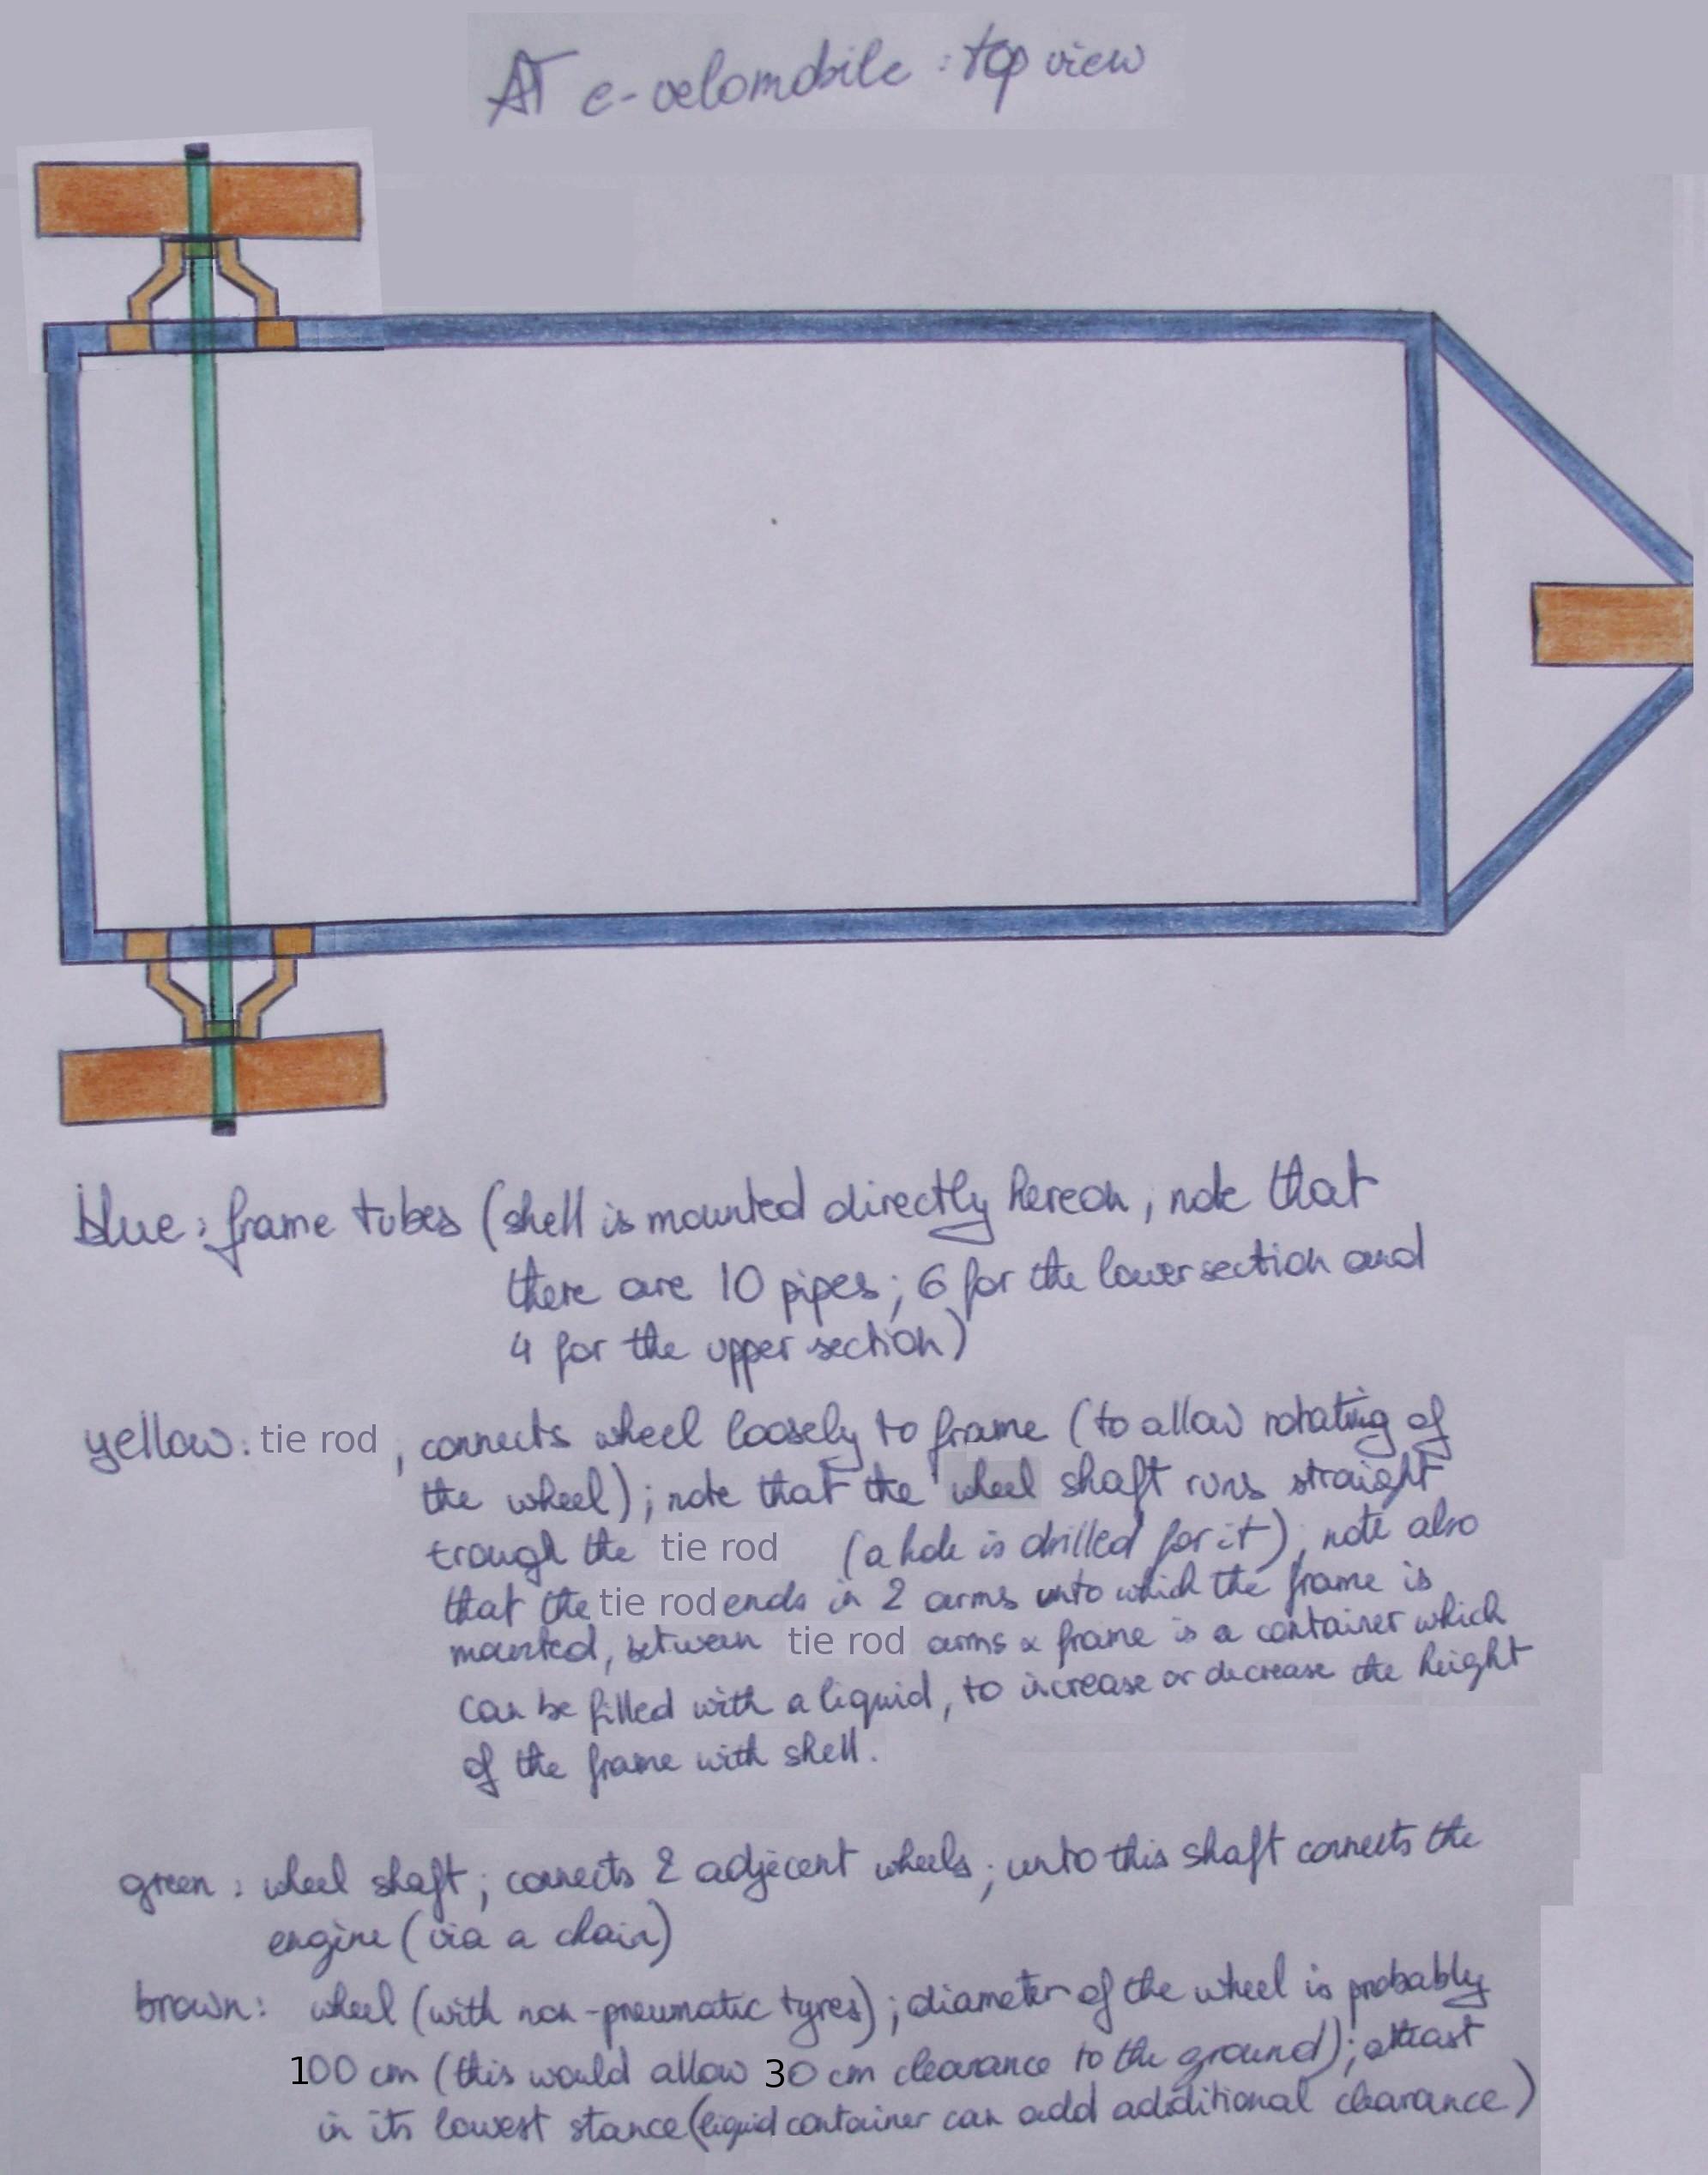 AT e-velomobile : top view
blue : frame tubes (shell is mounted directly hereon, note that
there are 10 pipes; 6 for the lower section and
4 for the upper section)
yellow: tie rod, connects wheel loosely to frame (to allow rotating of
the wheel); note that the wheel shaft runs straight
trough the tie rod (a hole is drilled for it), note also
that the tie rod ends in 2 arms unto which the frame is
mounted, between tie rod arms & frame is a container which
can be filled with a liquid, to increase or decrease the height
of the frame with shell.
green : wheel shaft; connects 2 adjecent wheels; unto this shaft connects the
engine (via a chain)
brown: wheel (with non-pneumatic tyres); diameter of the wheel is probably
100 cm (this would allow 30 cm clearance to the ground); atleast
in its lowest stance (liquid container can add additional clearance)